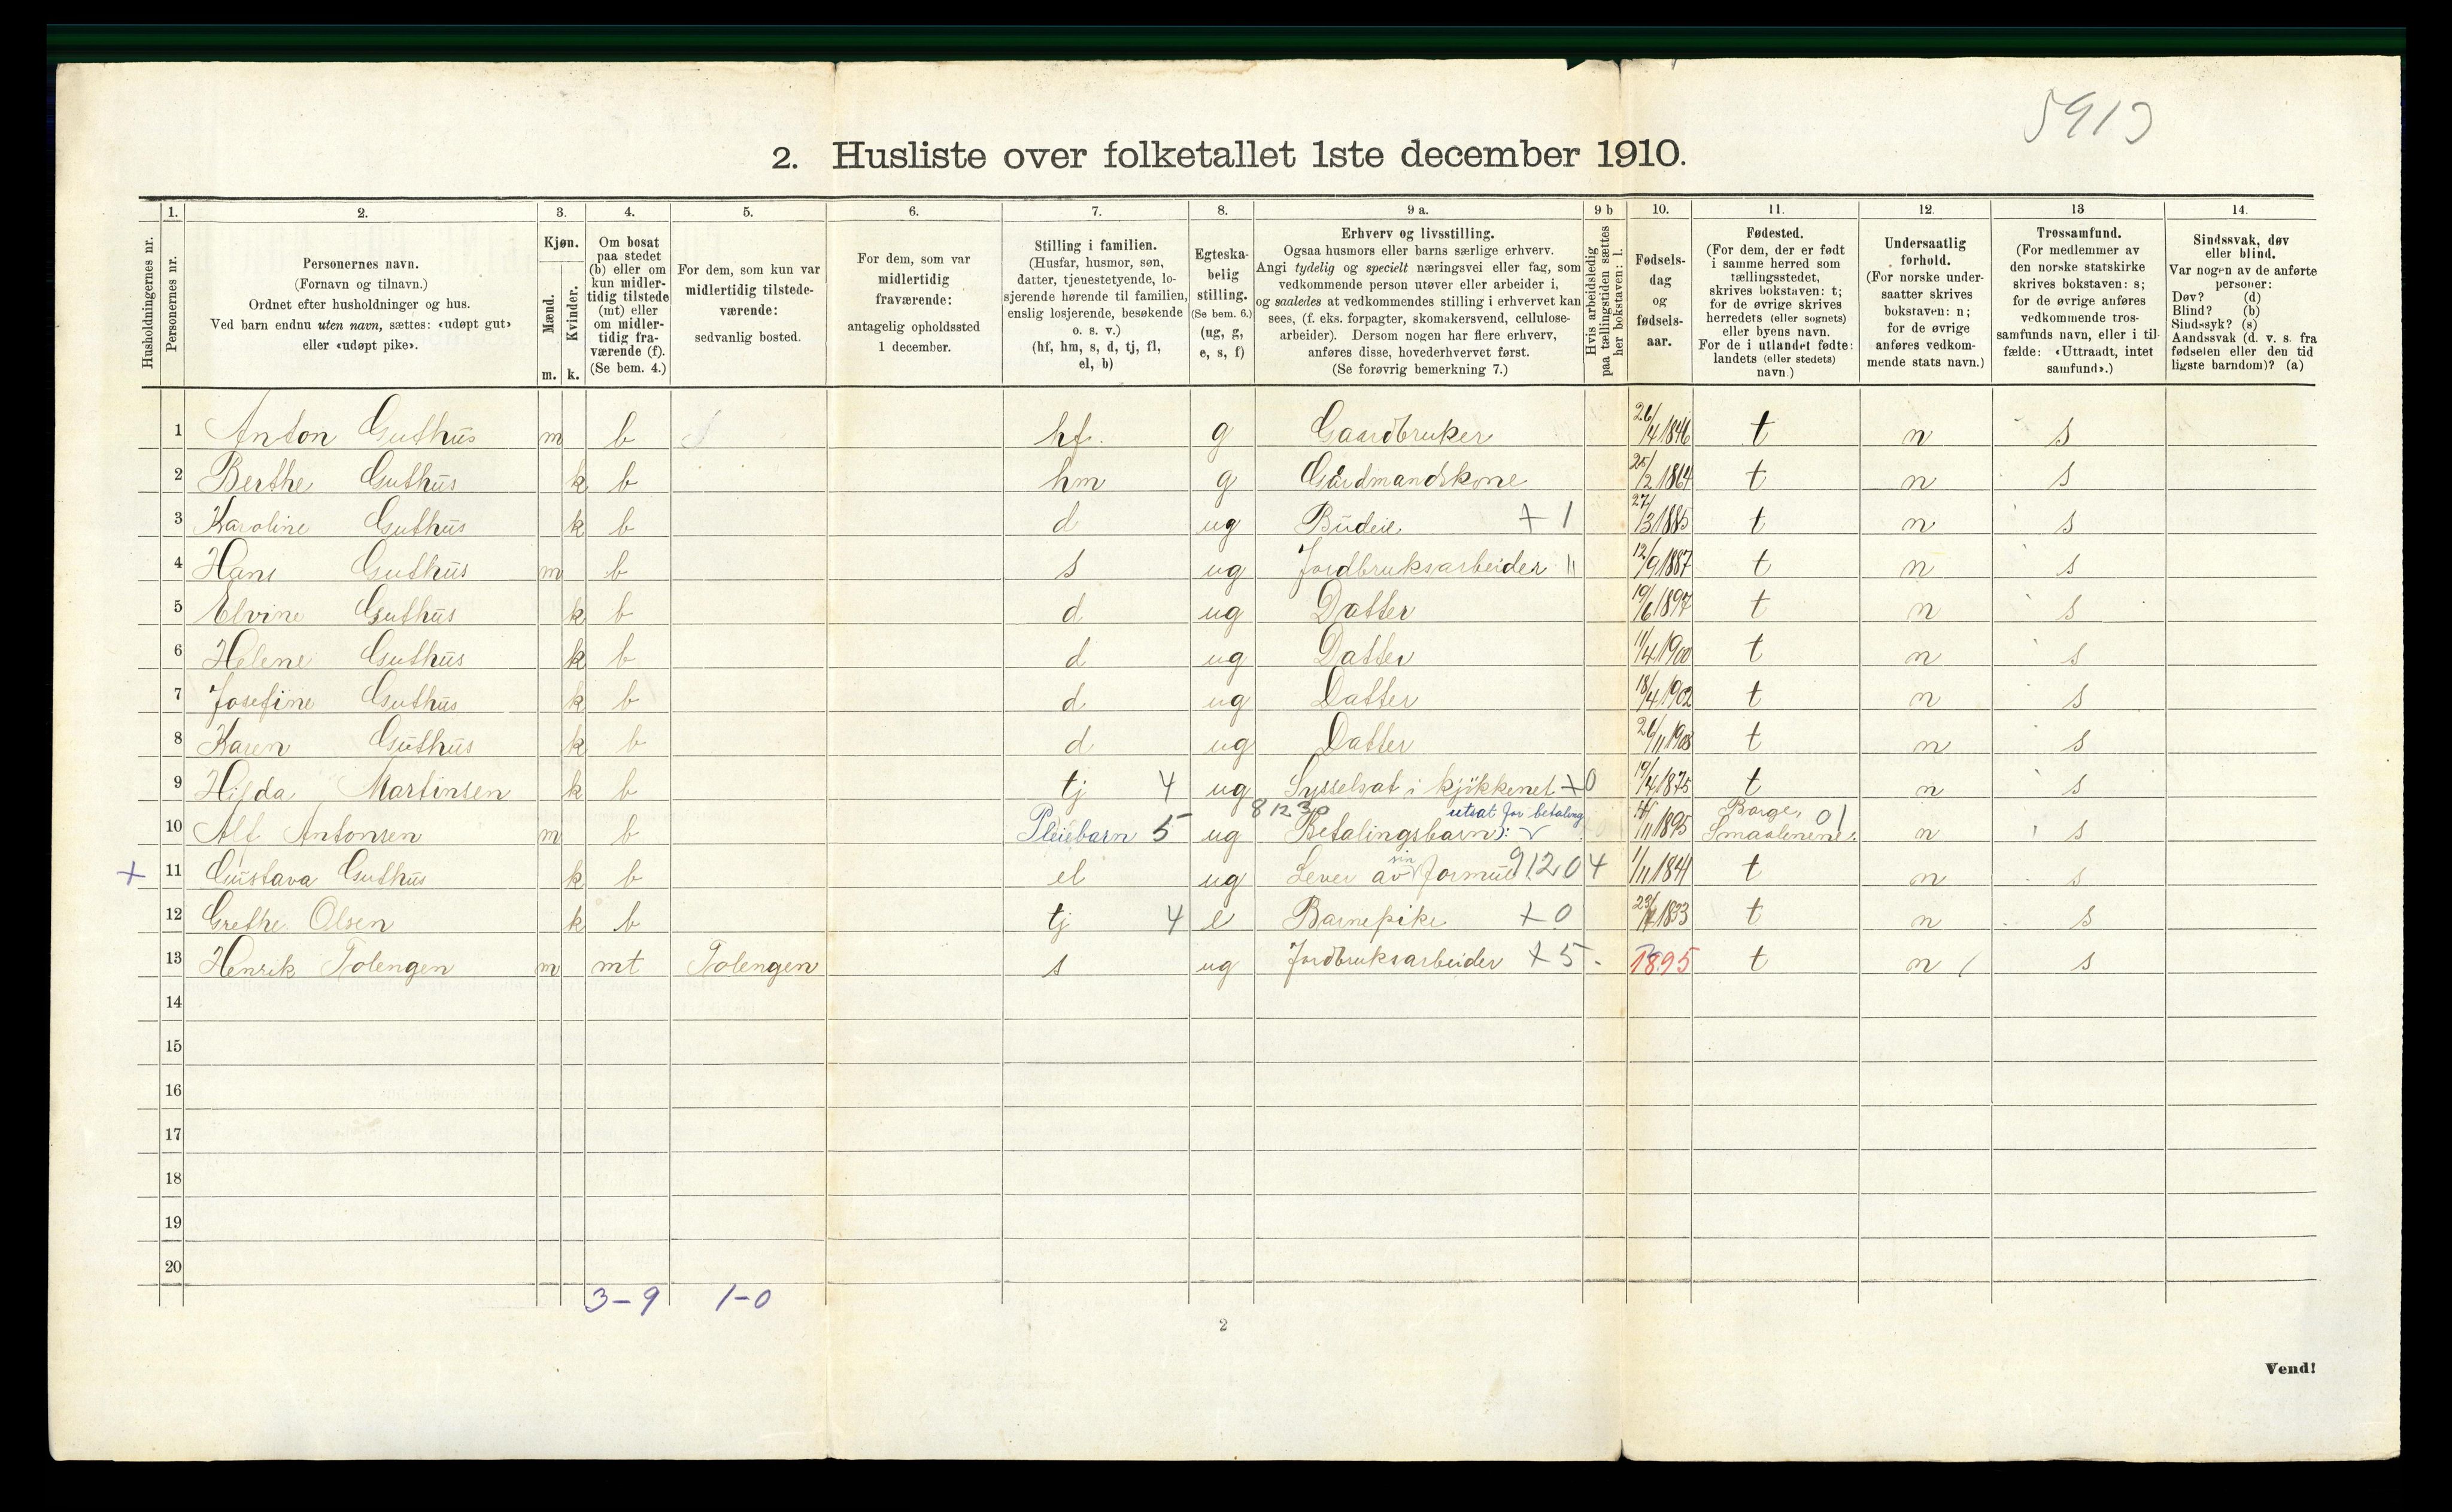 5913
2. Husliste over folketallet 1ste december 1910.
1. 2. 3. 4. 5. 6. 7. 8. 9 a. 9 b 10. 11. 12. 13 14.
Husholdningernes nr.
Personernes nr.
Personernes navn.
(Fornavn og tilnavn.)
Ordnet efter husholdninger og hus.
Ved barn endnu uten navn, sættes: «udøpt gut»
eller «udøpt pike».
Kjøn.
Mænd.
Kvinder.
m. k.
Om bosat
paa stedet
(b) eller om
kun midler-
tidig tilstede
(mt) eller
om midler-
tidig fra-
værende (f).
(Se bem. 4.)
For dem, som kun var
midlertidig tilstede-
værende:
sedvanlig bosted.
For dem, som var
midlertidig
fraværende:
antagelig opholdssted
1 december.
Stilling i familien.
(Husfar, husmor, søn,
datter, tjenestetyende, lo-
sjerende hørende til familien,
enslig losjerende, besøkende
o. s. v.)
(hf, hm, s, d, tj, fl,
el, b)
Egteska-
belig
stilling.
(Se bem. 6.)
(ug, g,
e, s, f)
Erhverv og livsstilling.
Ogsaa husmors eller barns særlige erhverv.
Angi tydelig og specielt næringsvei eller fag, som
vedkommende person utøver eller arbeider i,
og saaledes at vedkommendes stilling i erhvervet kan
sees, (f. eks. forpagter, skomakersvend, cellulose-
arbeider). Dersom nogen har flere erhverv,
anføres disse, hovederhvervet først.
(Se forøvrig bemerkning 7.)
Hvis arbeidsledig
paa tællingstiden sættes
her bokstaven: l.
Fødsels-
dag
og
fødsels-
aar.
Fødested.
(For dem, der er født
i samme herred som
tællingsstedet,
skrives bokstaven: t;
for de øvrige skrives
herredets (eller sognets)
eller byens navn.
For de i utlandet fødte:
landets (eller stedets)
navn.)
Undersaatlig
forhold.
(For norske under-
saatter skrives
bokstaven: n;
for de øvrige
anføres vedkom-
mende stats navn.)
Trossamfund.
(For medlemmer av
den norske statskirke
skrives bokstaven: s;
for de øvrige anføres
vedkommende tros-
samfunds navn, eller i til-
fælde: «Uttraadt, intet
samfund».)
Sindssvak, døv
eller blind.
Var nogen av de anførte
personer:
Døv? (d)
Blind? (b)
Sindssyk? (s)
Aandssvak (d. v. s. fra
fødselen eller den tid
ligste barndom)? (a)
1 Anton Guthus m b hf. g Gaardbruker 26/4 1846 t n s
2 Berthe Guthus k b hm g Gårdmandskone 25/2 1864 t n s
3 Karoline Guthus k b d ug Budeie + 1 27/3 1885 t n s
4 Hans Guthus m b s ug Jordbruksarbeider 11 12/9 1887 t n s
5 Elvine Guthus k b d ug Datter 19/6 1897 t n s
6 Helene Guthus k b d ug Datter 11/4 1900 t n s
7 Josefine Guthus k b d ug Datter 18/4 1902 t n s
8 Karen Guthus k b d ug Datter 26/11 1908 t n s
9 Hilda Martinsen k b tj 4 ug Sysselsat i kjökkenet + 0 19/4 1875 t n s
8 12 30 utsat for betaling Borge, 01
10 Alf Antonsen m b Pleiebarn 5 ug Betalingsbarn): /11 1895 Smaalenene. n s
+ 11 Gustava Guthus k b el ug Lever av sin formue 91204 1/11 1841 t n s
12 Grethe Olsen k b tj 4 e Barnepike + 0 1833 t n s
13 Henrik Tolengen m mt Tolengen s ug Jordbruksarbeider + 5 - 1895 t n s
14
15
16
17
18
19
20
3-9 1-0
2
Vend!